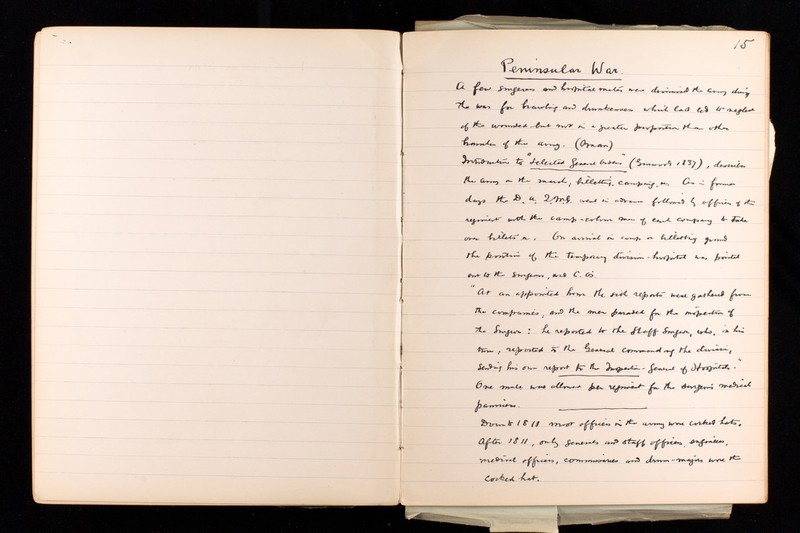 15
Peninsular War.
A few surgeons and hospital mates were dismissed the army during
the war for brawling and drunkenness which had led to neglect
of the wounded but not in a greater proportion than other
branches of the army. (Oman)
Introduction to "Selected General Orders" (Gurwood 1837), describes
the army on the march, billeting, camping, etc. As in former
days the D. A. Q.M.G. went in advance followed by officers of the
regiment with the camp-colour men of each company to take
over billets etc. On arrival in camp or billeting ground
the position of the temporary division-hospital was pointed
out to the surgeons, and C. Os.
"At an appointed hour the sick reports were gathered from
the companies, and the men paraded for the inspection of
the Surgeon: he reported to the Staff Surgeon, who, in his
turn, reported to the General commanding the division,
sending his own report to the Inspector-General of Hospitals."
One mule was allowed per regiment for the surgeon's medical
panniers.
Down to 1811 most officers in the army wore cocked hats.
After 1811, only generals and staff officers, engineers,
medical officers, commissaries and drum-majors wore the
cocked hat.